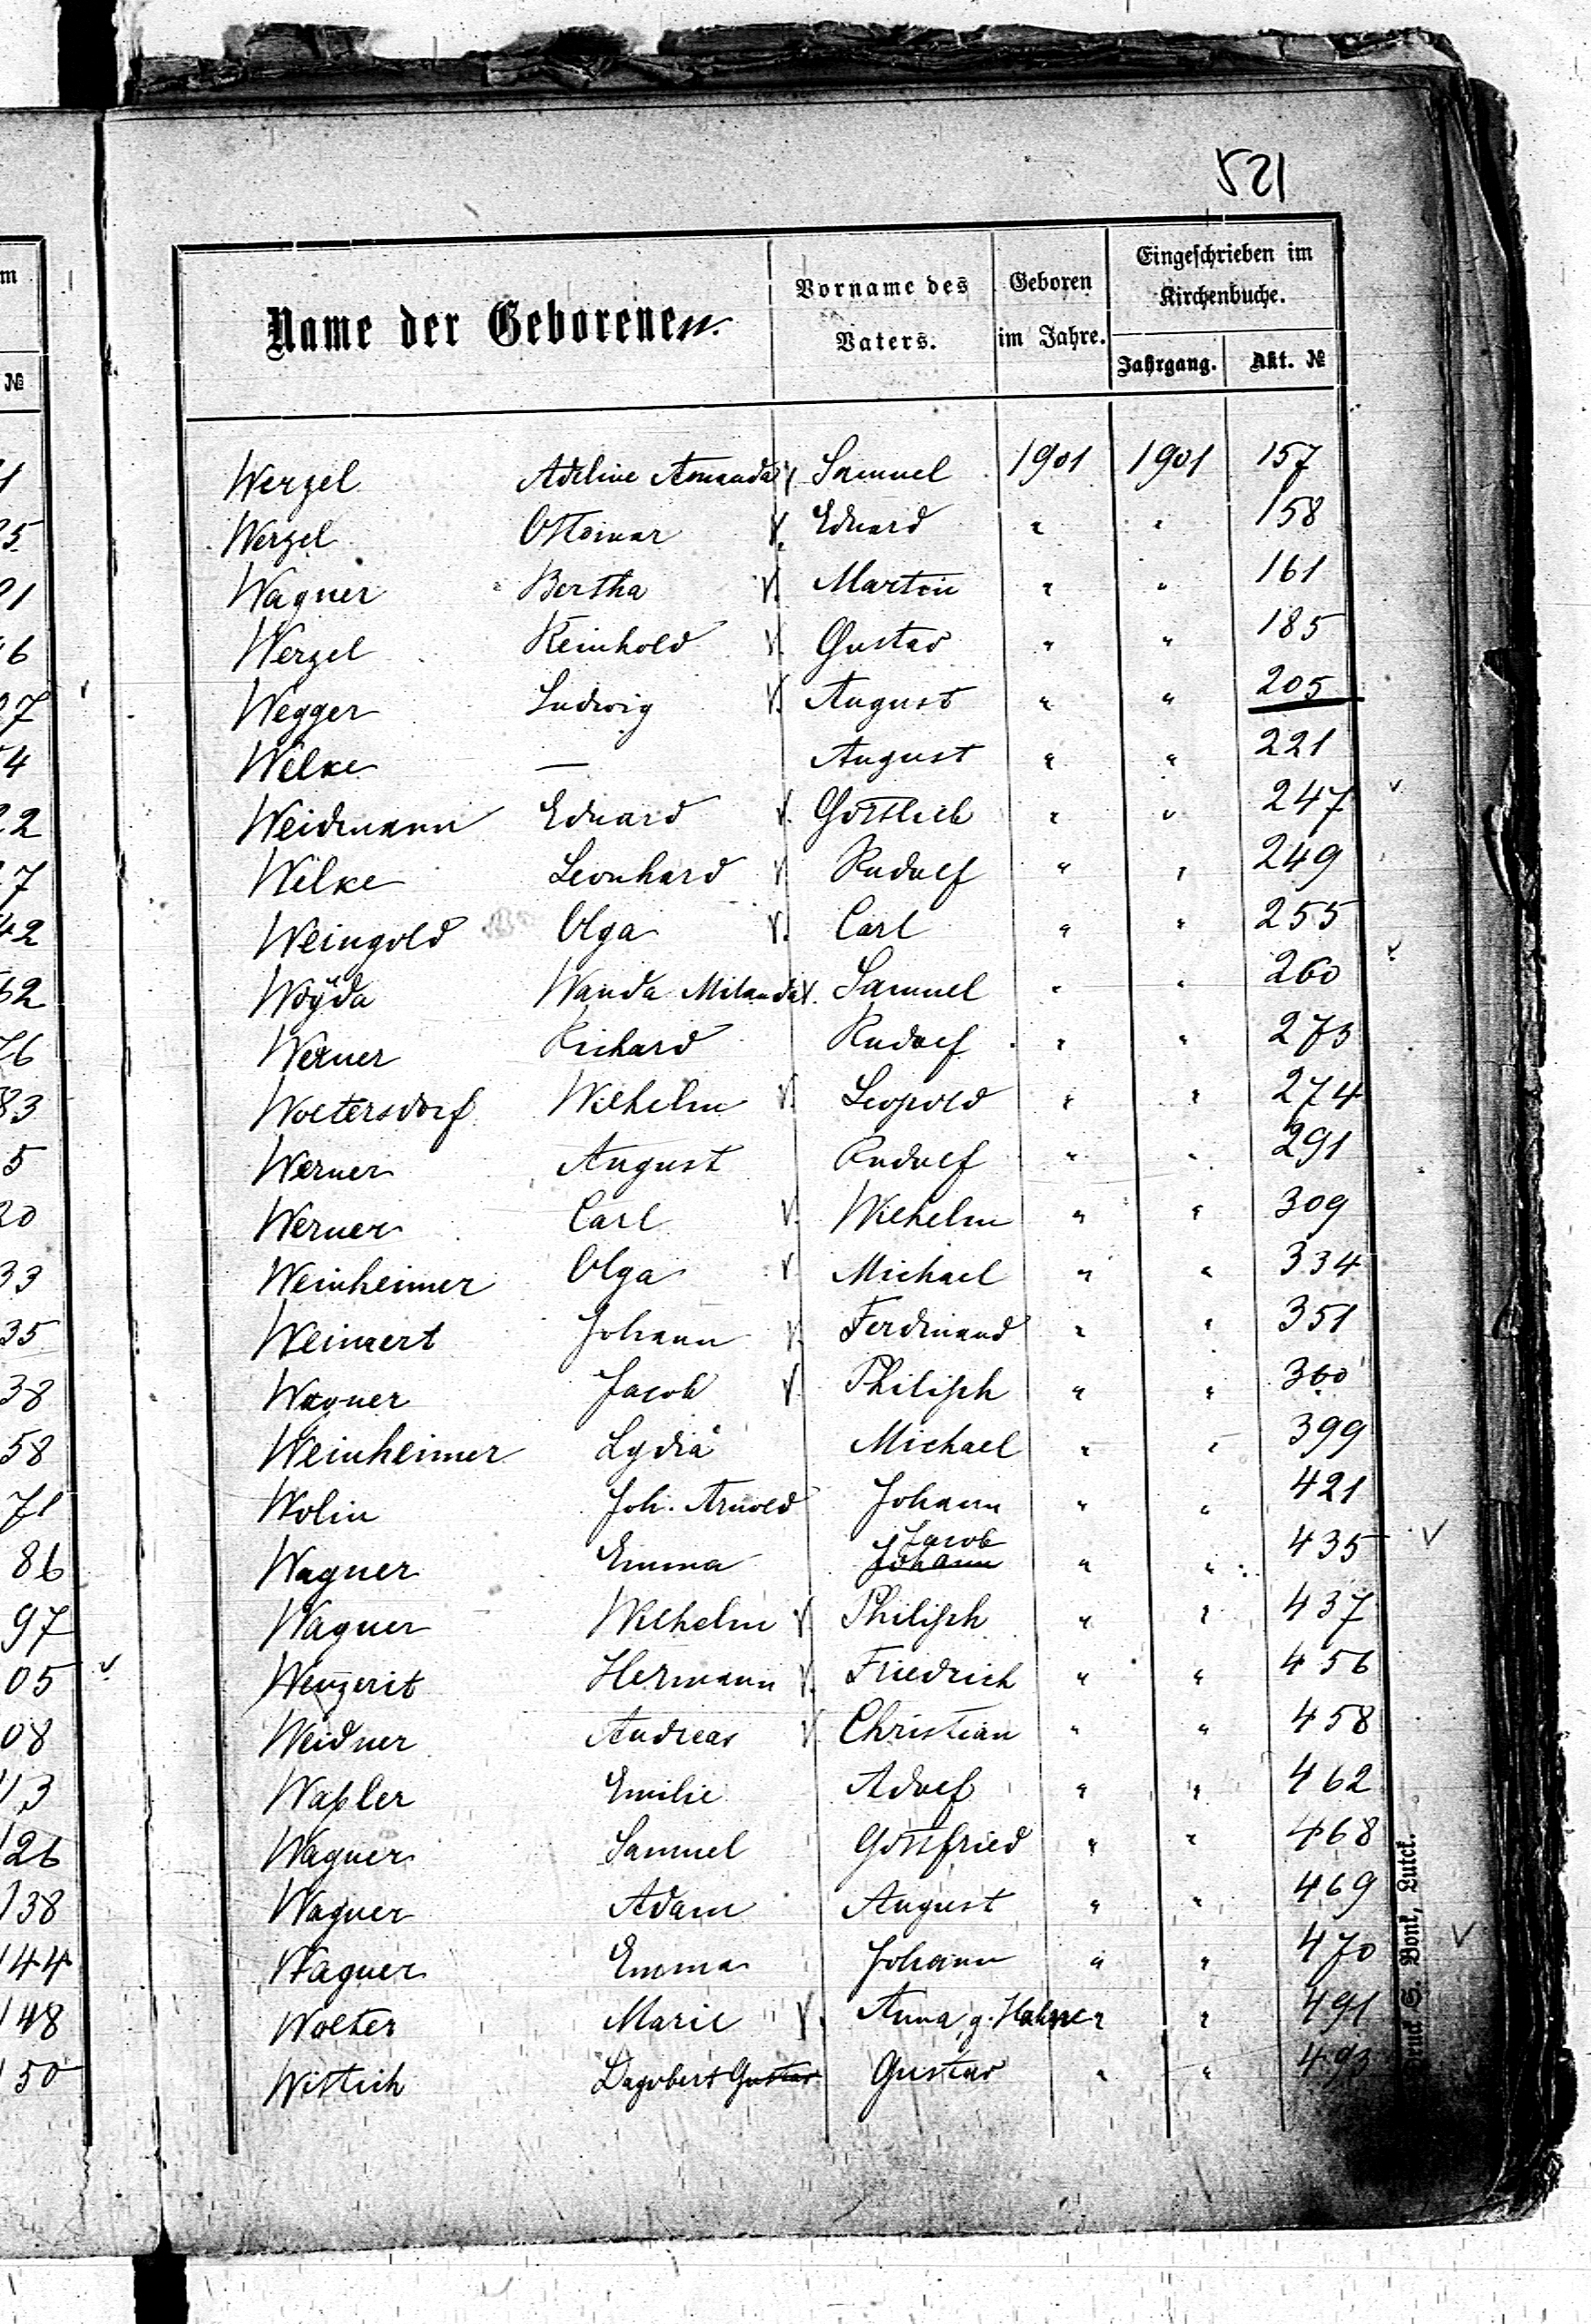 521
Name der Geborenen.
Vorname des Vaters.
Geboren im Jahre.
Eingeschrieben im Kirchenbuche.
Jahrgang. Akt. №
Werzel Adeline Amanda V Samuel 1901 1901 157
Werzel Ottomar V. Eduard " " 158
Wagner Bertha V. Martin " " 161
Werzel Reinhold V. Gustav " " 185
Wegger Ludwig V. August " " 205
Wilke — August " " 221
Weidmann Eduard V. Gottlieb " " 247 v
Wilke Leonhard V Rudolf " " 249
Weingold Olga V. Carl " " 255
Woÿda Wanda Milanda V. Samuel " " 260 v
Werner Richard Rudolf " " 273
Woltersdorf Wilhelm V. Leopold " " 274
Werner August Rudolf " " 291
Werner Carl V. Wilhelm " " 309
Weinheimer Olga V Michael " " 334
Weinert Johann V. Ferdinand " " 351
Wagner Jacob V Philipp " " 360
Weinheimer Lydia Michael " " 399
Wolin Joh. Arnold Johann " " 421
Wagner Emma Jacob Johann " " 435 V
Wagner Wilhelm V Philipp " " 437
Hermann V. Friedrich " " 456
Weidner Andreas V Christian " " 458
Waßler Emilie Adolf " " 462
Wagner Samuel Gottfried " " 468
Wagner Adam August " " 469
Wagner Emma Johann " " 470 V
Wolter Marie V. Anna, g. Hahn " " 491
Wittich Dagobert Gustav Gustav " " 493
Druck S. Bonk, Lutzk.
m
№
1
5
91
6
07
4
22
7
42
62
76
83
5
20
33
35
38
58
71
86
97
05 v
08
13
126
138
144
148
150